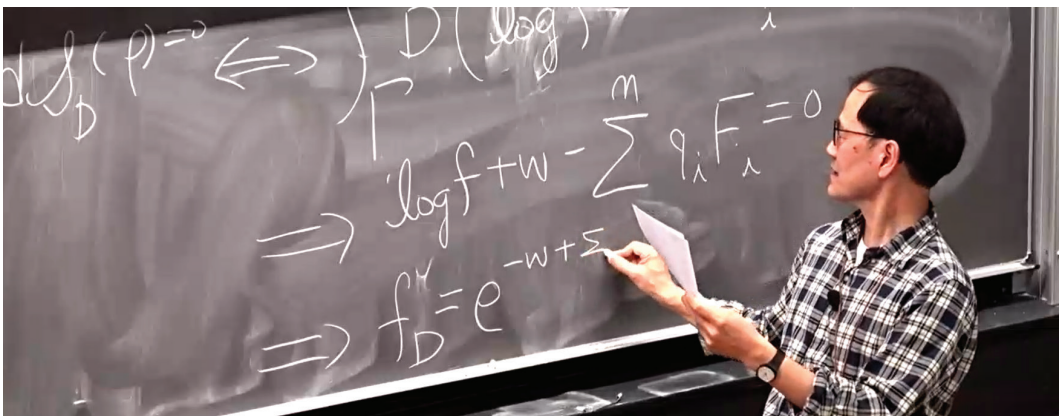 dS_D(ρ)=0 ⇔ ∫_Γ D(log)
i
⇒ log f + w - Σ^n q_i F_i = 0
⇒ f_D^* = e^{-w+Σ